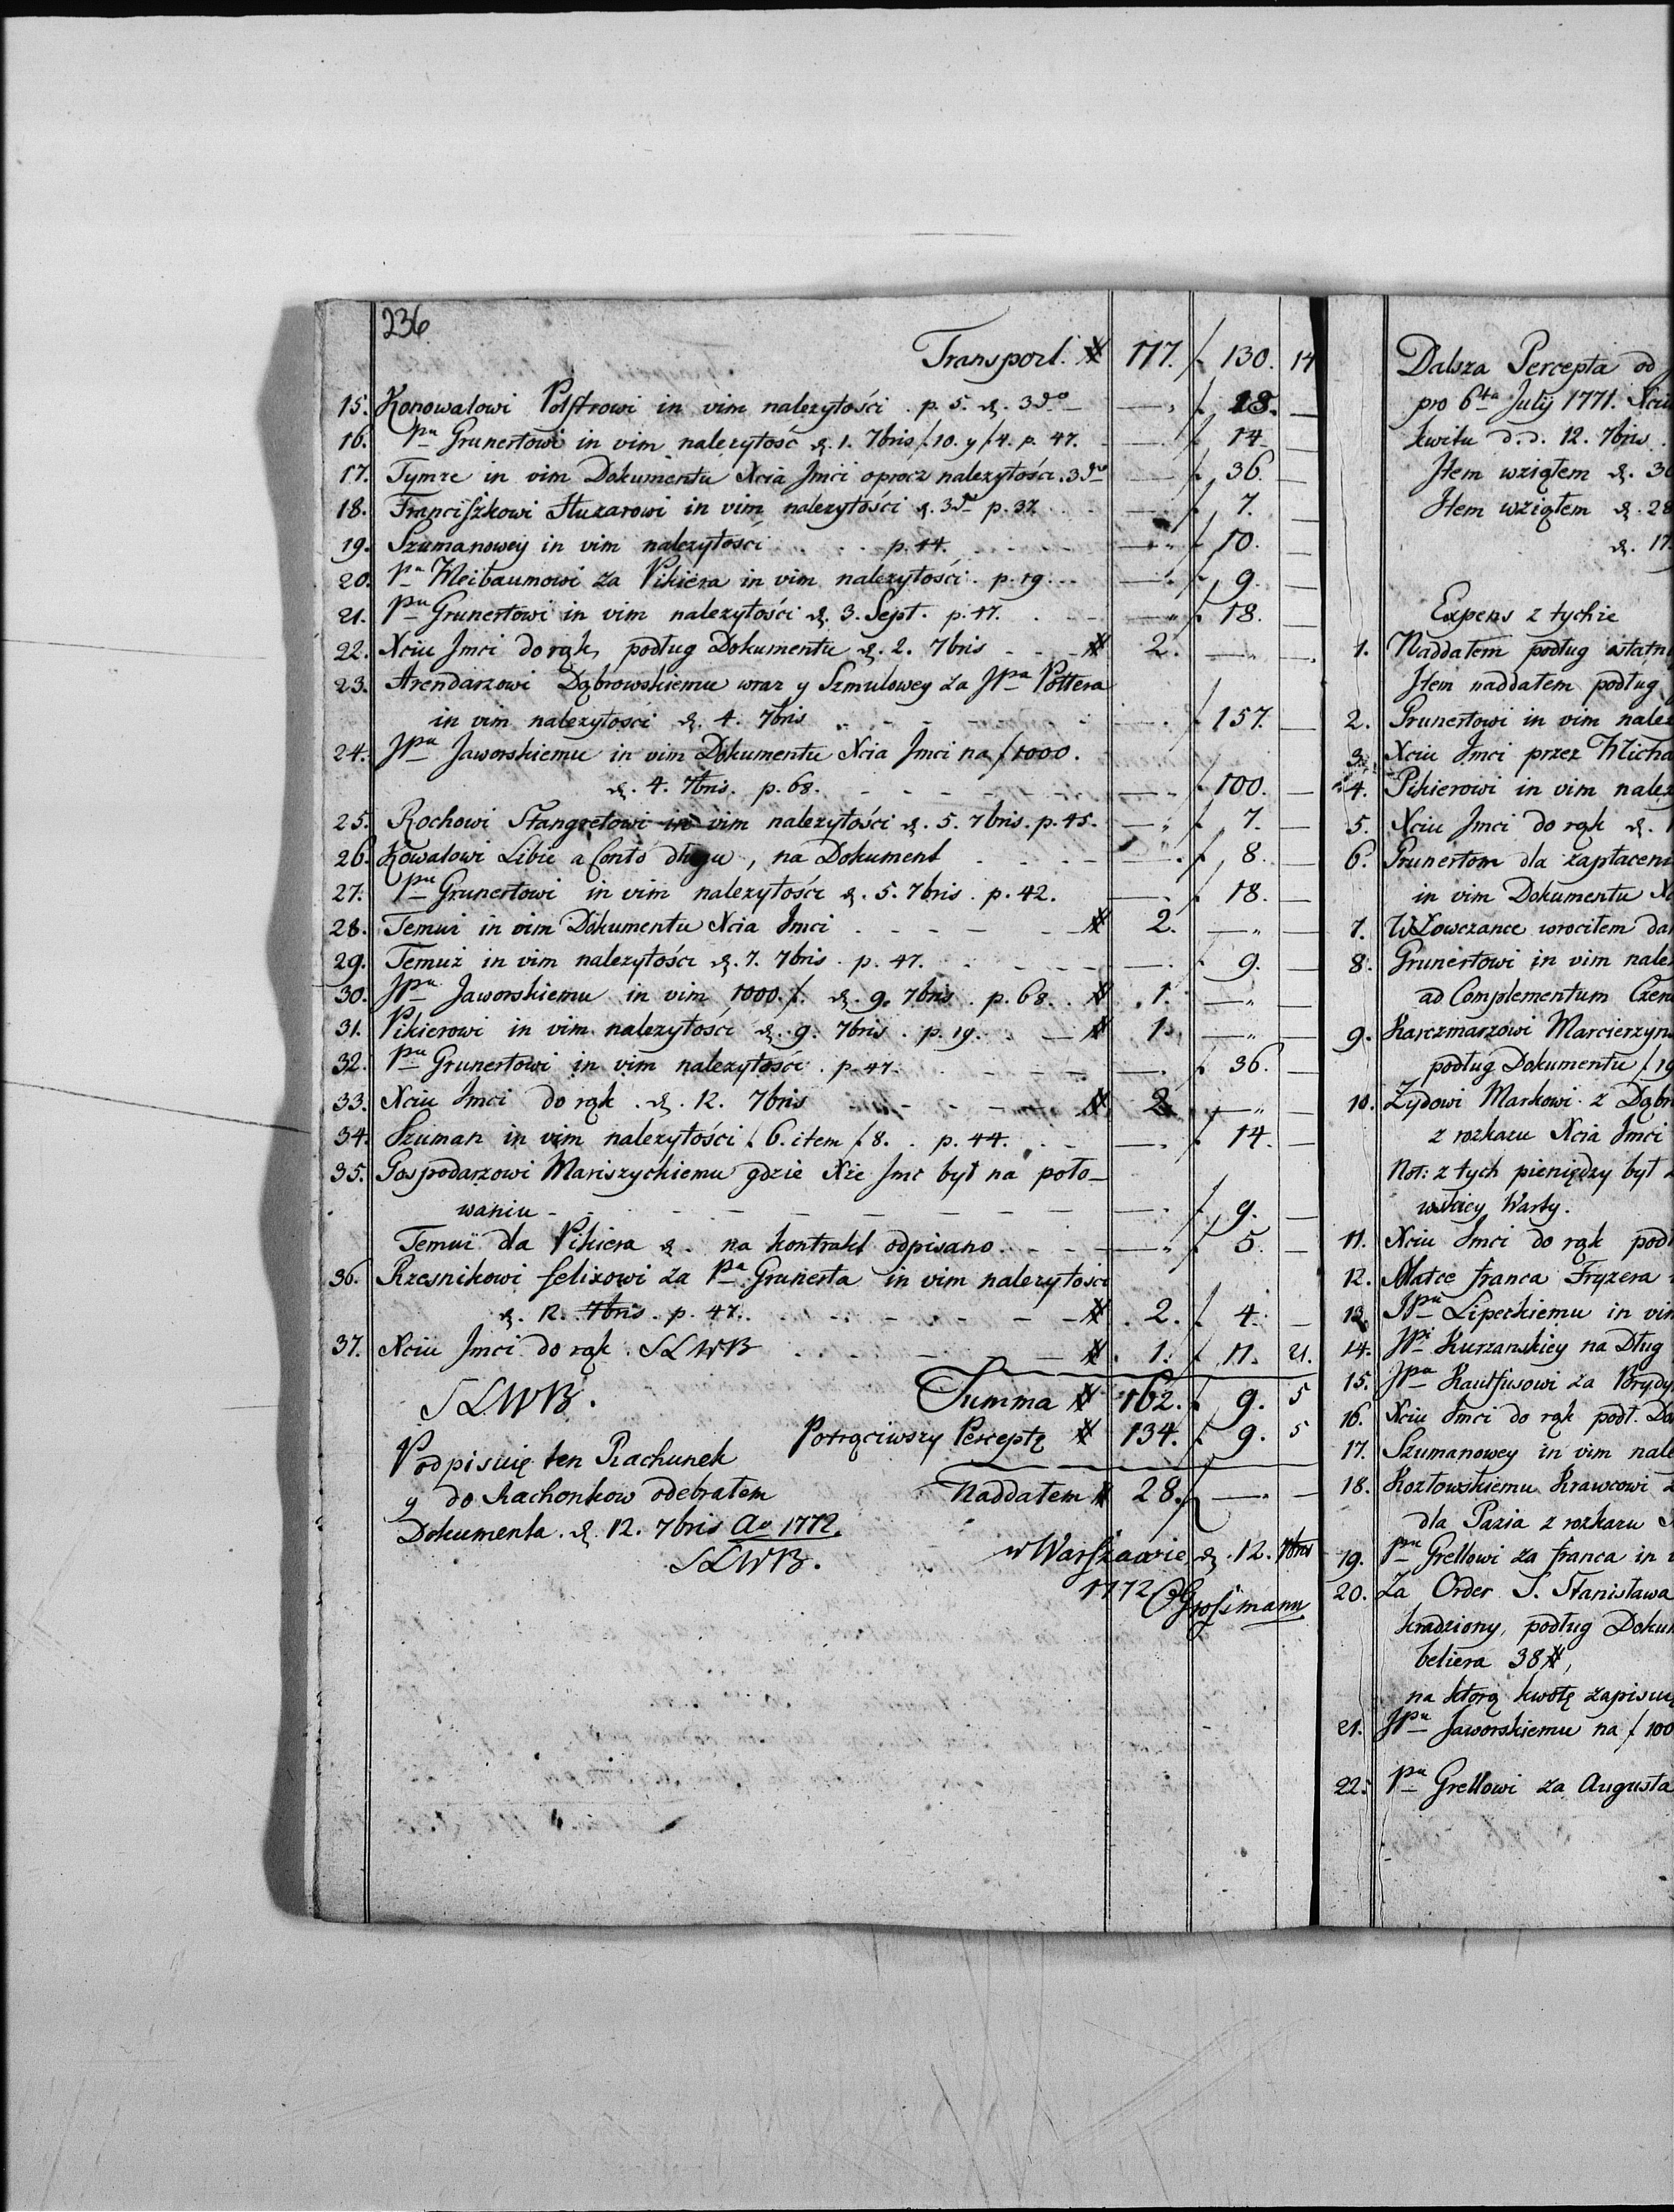 236.
Transport. # 117. f 130. 14
15. Konowałowi Polstrowi in vim należytości. p. 5. d. 3do —. f 18. —
16. Pnu Grunertowi in vim należytość d. 1. 7bris f. 10. y f 4. p. 47. —. f 14 —
17. Tymże in vim Dokumentu Xcia Jmci oprocz należytości. 3do — f 36. —
18. Franciszkowi Huzarowi in vim należytości d. 3do p. 37. —. f 7. —
19. Szumanowey in vim należytości p. 44. —. f 10. —
20. Pnu Weibaumowi za Pikiera in vim należytości. p. 19. —. f 9. —
21. Pnu Grunertowi in vim należytości d. 3. Sept. p. 47. —. f 18. —
22. Xciu Jmci do rąk, podług Dokumentu d. 2. 7bris # 2. —. —.
23. Arendarzowi Dąbrowskiemu wraz y Szmulowey za JPna Pottera
in vim należytości d. 4. 7bris —. f 157. —
24. JPnu Jaworskiemu in vim Dokumentu Xcia Jmci na f 1000.
d. 4. 7bris. p. 68. —. f 100. —
25. Rochowi Stangretowi in vim należytości d. 5. 7bris. p. 45. —. f 7. —
26. Kowalowi Libie a Conto długu, na Dokument —. f 8. —
27. Pnu Grunertowi in vim należytości d. 5. 7bris. p. 42. —. f 18. —
28. Temuż in vim Dokumentu Xcia Jmci # 2. —. —
29. Temuż in vim należytości d. 7. 7bris. p. 47. —. f 9. —
30. JPnu Jaworskiemu in vim 1000. f. d. 9. 7bris. p. 68. # 1. —. —
31. Pikierowi in vim należytości d. 9. 7bris. p. 19. # 1. —. —
32. Pnu Grunertowi in vim należytości. p. 47. —. f 36. —
33. Xciu Jmci do rąk. d. 12. 7bris # 2. —. —
34. Szuman in vim należytości f 6. item f 8. p. 44. —. f 14. —
35. Gospodarzowi Mariszyckiemu gdzie Xże Jmc był na polo-
waniu —. f 9. —
Temuż dla Pikiera d. na kontrakt odpisano. —. f 5. —
36. Rzesnikowi felixowi za Pna Grunerta in vim należytości
d. 12. 7bris. p. 47. # 2. f 4. —
37. Xciu Jmci do rąk. SLWB # 1. f 11. 21.
SLWB. Summa # 162. f 9. 5
Potrąciwszy Perceptę # 134. f 9. 5
Podpisuię ten Rachunek
y do Rachonkow odebrałem Naddałem # 28. f —. —
Dokumenta. d. 12. 7bris Ao 1772.
SLWB. w Warszawie d. 12. 7bris
1772 Grossmann
Dalsza Percepta od
pro 6ta July 1771. Xciu
kwitu d. d. 12. 7bris.
Item wziąłem d. 30
Item wziąłem d. 28
d. 17
Expens z tychże
1. Naddałem podług ostatni
Item naddałem podług
2. Grunertowi in vim należ
3. Xciu Jmci przez Micha
4. Pikierowi in vim należ
5. Xciu Jmci do rąk d. 1
6. Grunertom dla zapłaceni
in vim Dokumentu Xc
7. WŁowczance wrociłem da
8. Grunertowi in vim nale
ad Complementum Czer
9. Karczmarzowi Marcierzyn
podług Dokumentu f 19
10. Zydowi Markowi z Dąbr
z rozkazu Xcia Jmci
Not: z tych pieniędzy był
Warty.
11. Xciu Jmci do rąk podł
12. Matce franca Fryzera
13. JPnu Lipeckiemu in vim
14. JPi Kurzanskiey na Dług
15. JPnu Kautfusowi za
16. Xciu Jmci do rąk podł. Do
17. Szumanowey in vim nale
18. Kozłowskiemu Krawcowi z
dla Pazia z rozkazu
19. Pnu Grellowi za franca in
20. Za Order S. Stanisława
kradziony, podług Dokum
beliera 38 #,
na ktorą kwotę zapisuię
21. JPnu Jaworskiemu na f 100
22. Pnu Grellowi za Augusta